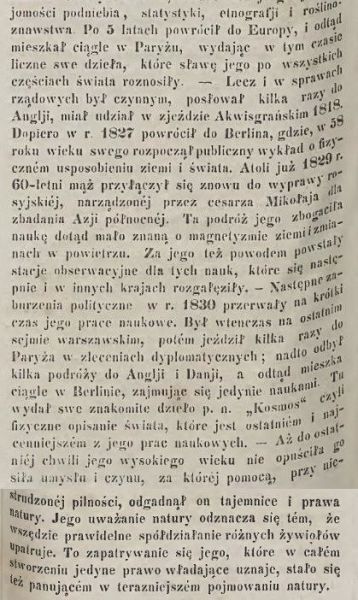 jomości podniebia, statystyki, etnografji i roślino-
znawstwa. Po 5 latach powrócił do Europy, i odtąd
mieszkał ciągle w Paryżu, wydając w tym czasie
liczne swe dzieła, które sławę jego po wszystkich
częściach świata roznosiły. — Lecz i w sprawach
rządowych był czynnym, posłował kilka razy do
Anglji, miał udział w zjeździe Akwisgrańskim 1818.
Dopiero w r. 1827 powrócił do Berlina, gdzie, w 58
roku wieku swego rozpoczął publiczny wykład o fizy-
czném usposobieniu ziemi i świata. Atoli już 1829 r.
60-letni mąż przyłączył się znowu do wyprawy ro-
syjskiéj, narządzonéj przez cesarza Mikołaja dla
zbadania Azji północnéj. Ta podróż jego zbogaciła
naukę dotąd mało znaną o magnetyzmie ziemi i zmia-
nach w powietrzu. Za jego też powodem powstały
stacje obserwacyjne dla tych nauk, które się nastę-
pnie i w innych krajach rozgałęziły. — Następne za-
burzenia polityczne w r. 1830 przerwały na krótki
czas jego prace naukowe. Był wtenczas na ostatnim
sejmie warszawskim, potém jeździł kilka razy do
Paryża w zleceniach dyplomatycznych; nadto odbył
kilka podróży do Anglji i Danji, a odtąd mieszka
ciągle w Berlinie, zajmując się jedynie naukami. Tu
wydał swe znakomite dzieło p. n. „Kosmos" czyli
fizyczne opisanie świata, które jest ostatniém i naj-
cenniejszém z jego prac naukowych. — Aż do ostat-
niéj chwili jego wysokiego wieku nie opuściła go
siła umysłu i czynu, za któréj pomocą, przy nie-
strudzonéj pilności, odgadnął on tajemnice i prawa
natury. Jego uważanie natury odznacza się tém, że
wszędzie prawidelne spółdziałanie różnych żywiołów
upatruje. To zapatrywanie się jego, które w całém
stworzeniu jedyne prawo władające uznaje, stało się
też panującém w terazniejszém pojmowaniu natury.